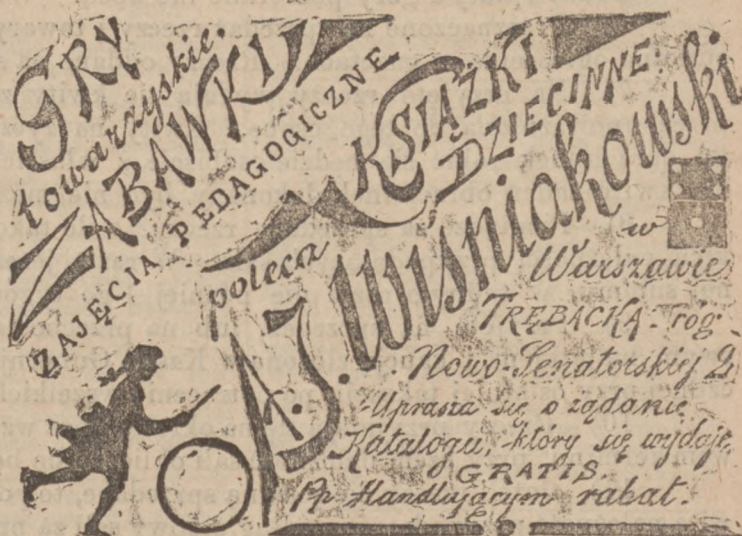 GRY
towarzyskie,
ZABAWKI
ZAJĘCIA PEDAGOGICZNE
KSIĄŻKI
DZIECINNE
poleca
A.J. Wiśniakowski
w
Warszawie
TRĘBACKA-róg
Nowo-Senatorskiej 2.
Uprasza się o żądanie
Katalogu, który się wydaje
GRATIS.
Pp. Handlującym rabat.